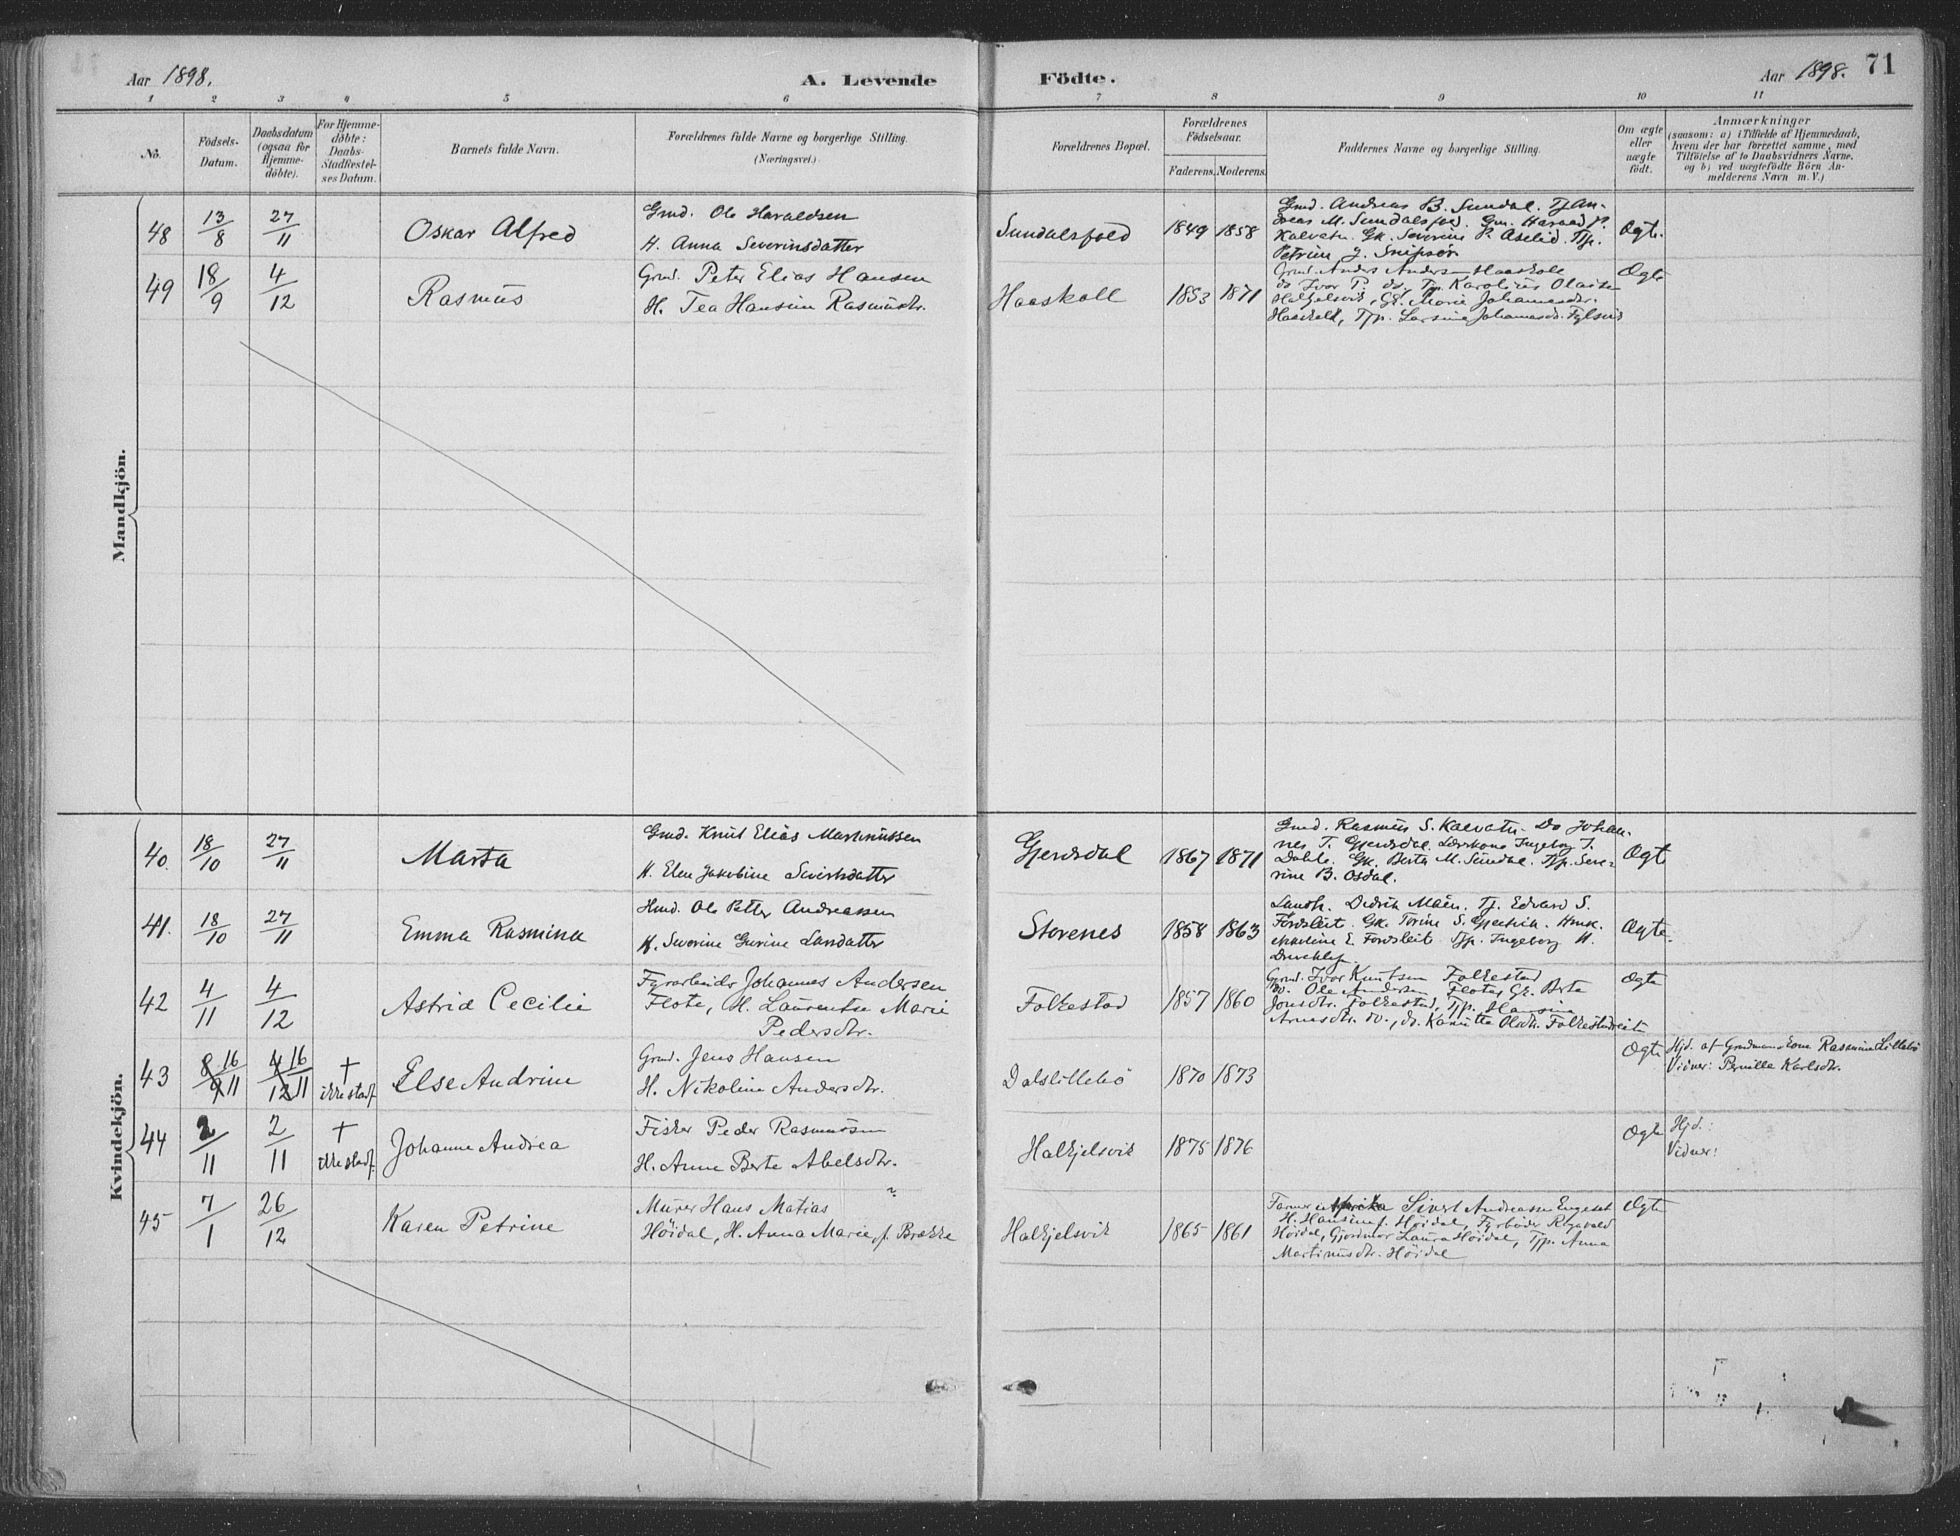 Aar 1898.
A. Levende
Födte.
Aar 1898.
71
1 2 3 4 5 6 7 8 9 10 11
No.
Födsels-
Datum.
Daabsdatum
(ogsaa for
Hjemme-
döbte).
For Hjemme-
döbte:
Daabs-
Stadfæstel-
ses Datum.
Barnets fulde Navn.
Forældrenes fulde Navne og borgerlige Stilling.
(Næringsvei.)
Forældrenes Bopæl.
Forældrenes
Födselsaar.
Faderens. Moderens.
Faddernes Navne og borgerlige Stilling.
Om ægte
eller
uægte
födt.
Anmærkninger
(saasom: a) i Tilfælde af Hjemmedaab,
hvem der har forrettet samme, med
Tilföielse af to Daabsvidners Navne,
og b) ved uægtefödte Börn An-
melderens Navn m. V.)
Mandkjön.
48
13/8
27/11
Oskar Alfred
Gmd. Ole Haraldsen
H. Anna Severinsdatter
Sundalsfold
1849 1858
Gmd. Andreas B. Sundal. Tj An-
dreas M. Sundalsfold. Gm. Harald P.
Kalvatn. Gk. Severine P. Aselid. Tjp.
Petrine J. Snipsør
Ægte.
49
18/9
4/12
Rasmus
Grmd. Peter Elias Hansen
H. Tea Hansine Rasmusdtr.
Haaskoll
1853 1871
Grmd. Anders Andersen Haaskole
do Ivar P. do, Tjp. Karoline Olaisen
Halkjelsvik, Gk. Marie Johannesdtr.
Haaskoll, Tjp. Larsine Johannesdtr.
Ægte
Kvindekjön.
40.
18/10
27/11
Marta
Gmd. Knut Elias Martinussen
H. Elen Jakobine Sivertsdatter
Gjerdsdal
1867 1871
Gmd. Rasmus S. Kalvatn. Do Johan-
nes T. Gjerdsdal. Lærerkone Ingeborg J.
Dahle. Gk. Berte M. Sundal. Tjp. Seve-
rine B. Osdal.
Ægte
41.
18/10
27/11
Emma Rasmina
Hmd. Ole Petter Andreassen
H. Severine Gurine Larsdatter
Storenes
1858 1863
Landh. Didrik Måen. Tj. Edvard S.
Fordsleit. Gk. Torine S. Hmk.
E. Fordsleit. Tjp. Ingeborg H.
Ægte.
42
4/11
4/12
Astrid Cecilie
Fyrarbeider Johannes Andersen
Flote, H. Laurentse Marie
Pedersdtr.
Folkestad
1857 1860
Grmd. Ivar Knutsen Folkestad
do. Ole Andersen Flote, Gk. Berte
Jonsdtr. Folkestad, Tjp. Hansine
Arnesdtr. do., do. Kanutte Olsdtr.
Ægte
43
8/9 16/11
4/12 16/11
+
ikke stadf.
Else Andrine
Grmd. Jens Hansen
H. Nikoline Andersdtr.
Dalslillebö
1870 1873
Ægte
Hjd. af Grmdmandskone Rasmine Lillebö
Vidner: Pernille Karlsdtr.
44
2/11
2/11
+
ikke stadf.
Johanne Andrea
Fisker Peder Rasmussen
H. Anne Berte Abelsdtr.
Halkjelsvik
1875 1876
Ægte
Hjd.:
Vidner:
45
7/1
26/12
Karen Petrine
Murer Hans Matias
Höidal, H. Anna Marie, f. Brække
Halkjelsvik
1865 1861
Farmer i Afrika Sivert Andreassen Engeset
H. Hansine f. Höidal, Fyrböder R
Höidal, Gjordmor Laura Höidal, Tjp. Anna
Martinusdtr. Höidal
Ægte